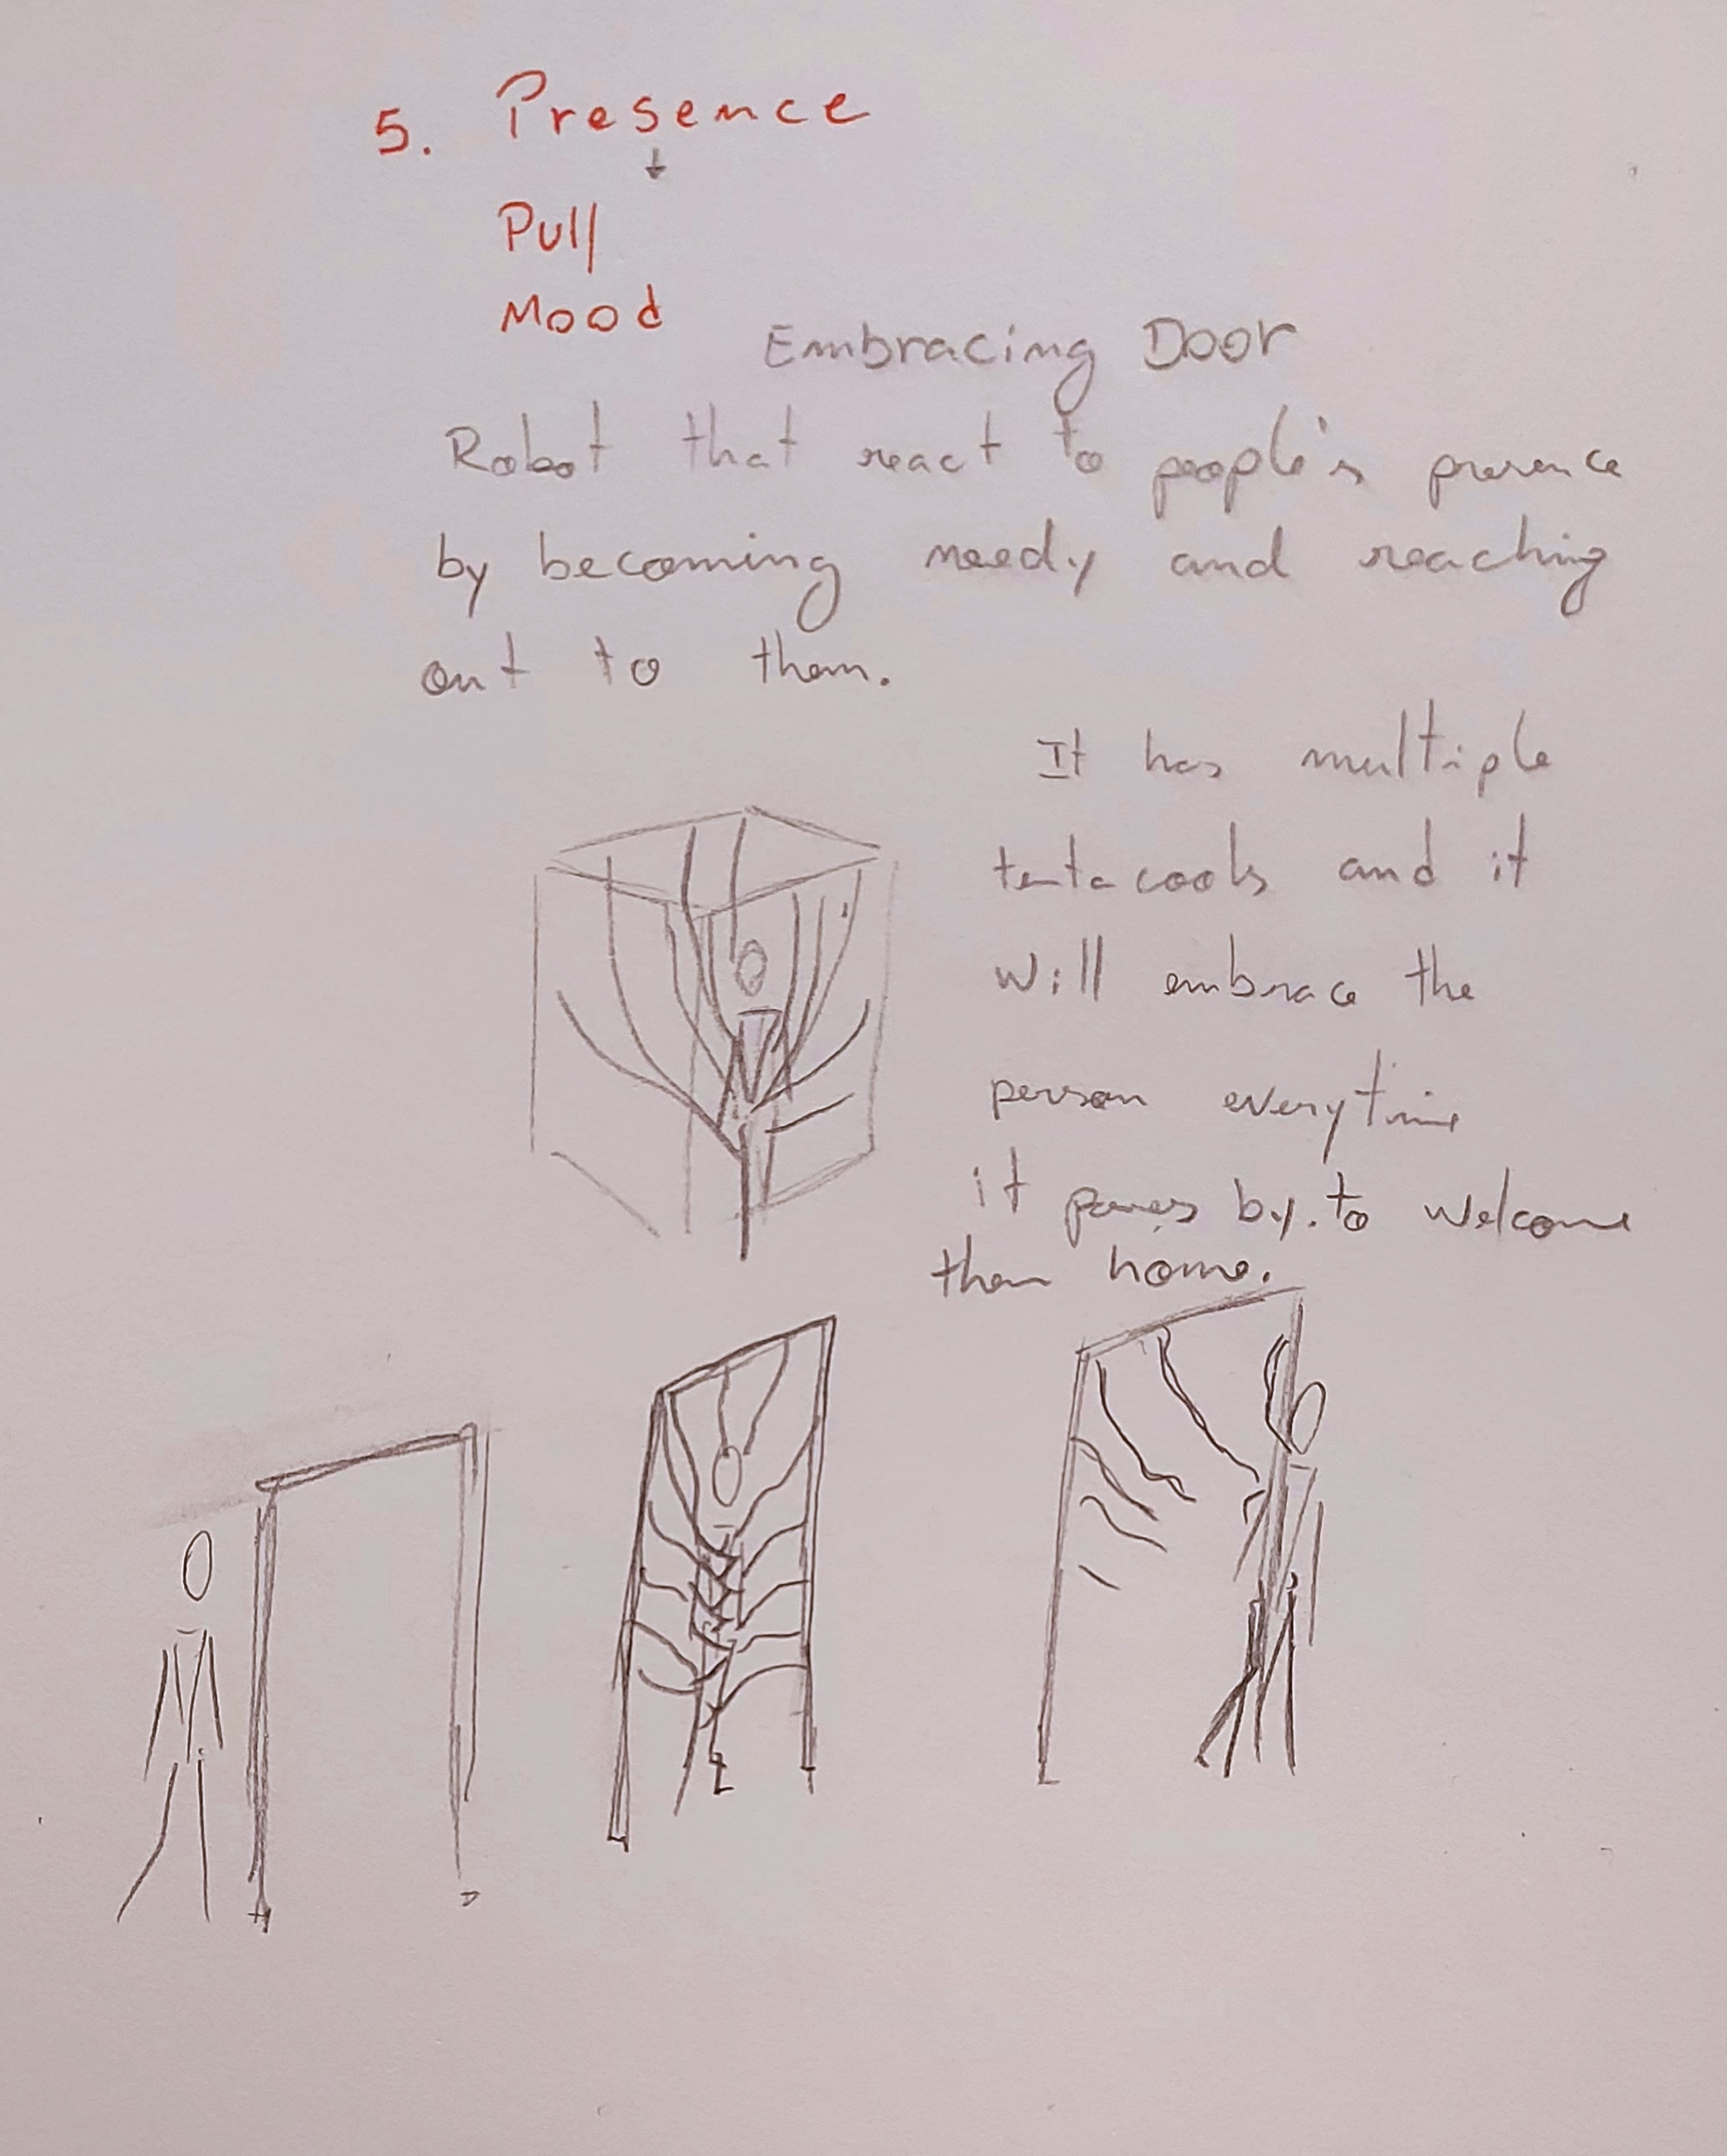 5. Presence
↓
Pull
Mood
Embracing Door
Robot that react to people's presence
by becoming needy and reaching
out to them.
It has multiple
tentacools and it
will embrace the
person everytime
it passes by. to welcome
them home.